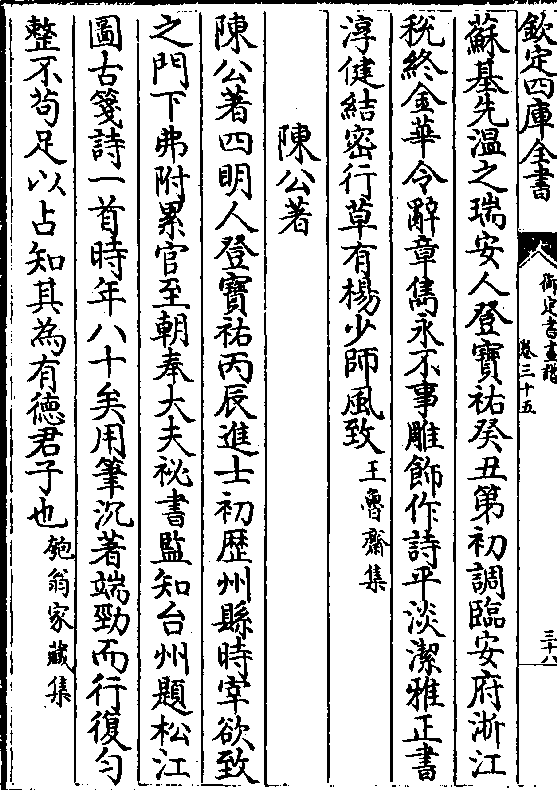 欽定四庫全書
御定書畫譜
卷三十五
三十八
蘇基先溫之瑞安人登寶祐癸丑第初調臨安府浙江
稅終金華令辭章雋永不事雕飾作詩平淡潔雅正書
淳健結密行草有楊少師風致王魯齋集
陳公著
陳公著四明人登寶祐丙辰進士初歷州縣時宰欲致
之門下弗附累官至朝奉大夫祕書監知台州題松江
圖古箋詩一首時年八十矣用筆沉著端勁而行復勻
整不苟足以占知其為有德君子也匏翁家藏集